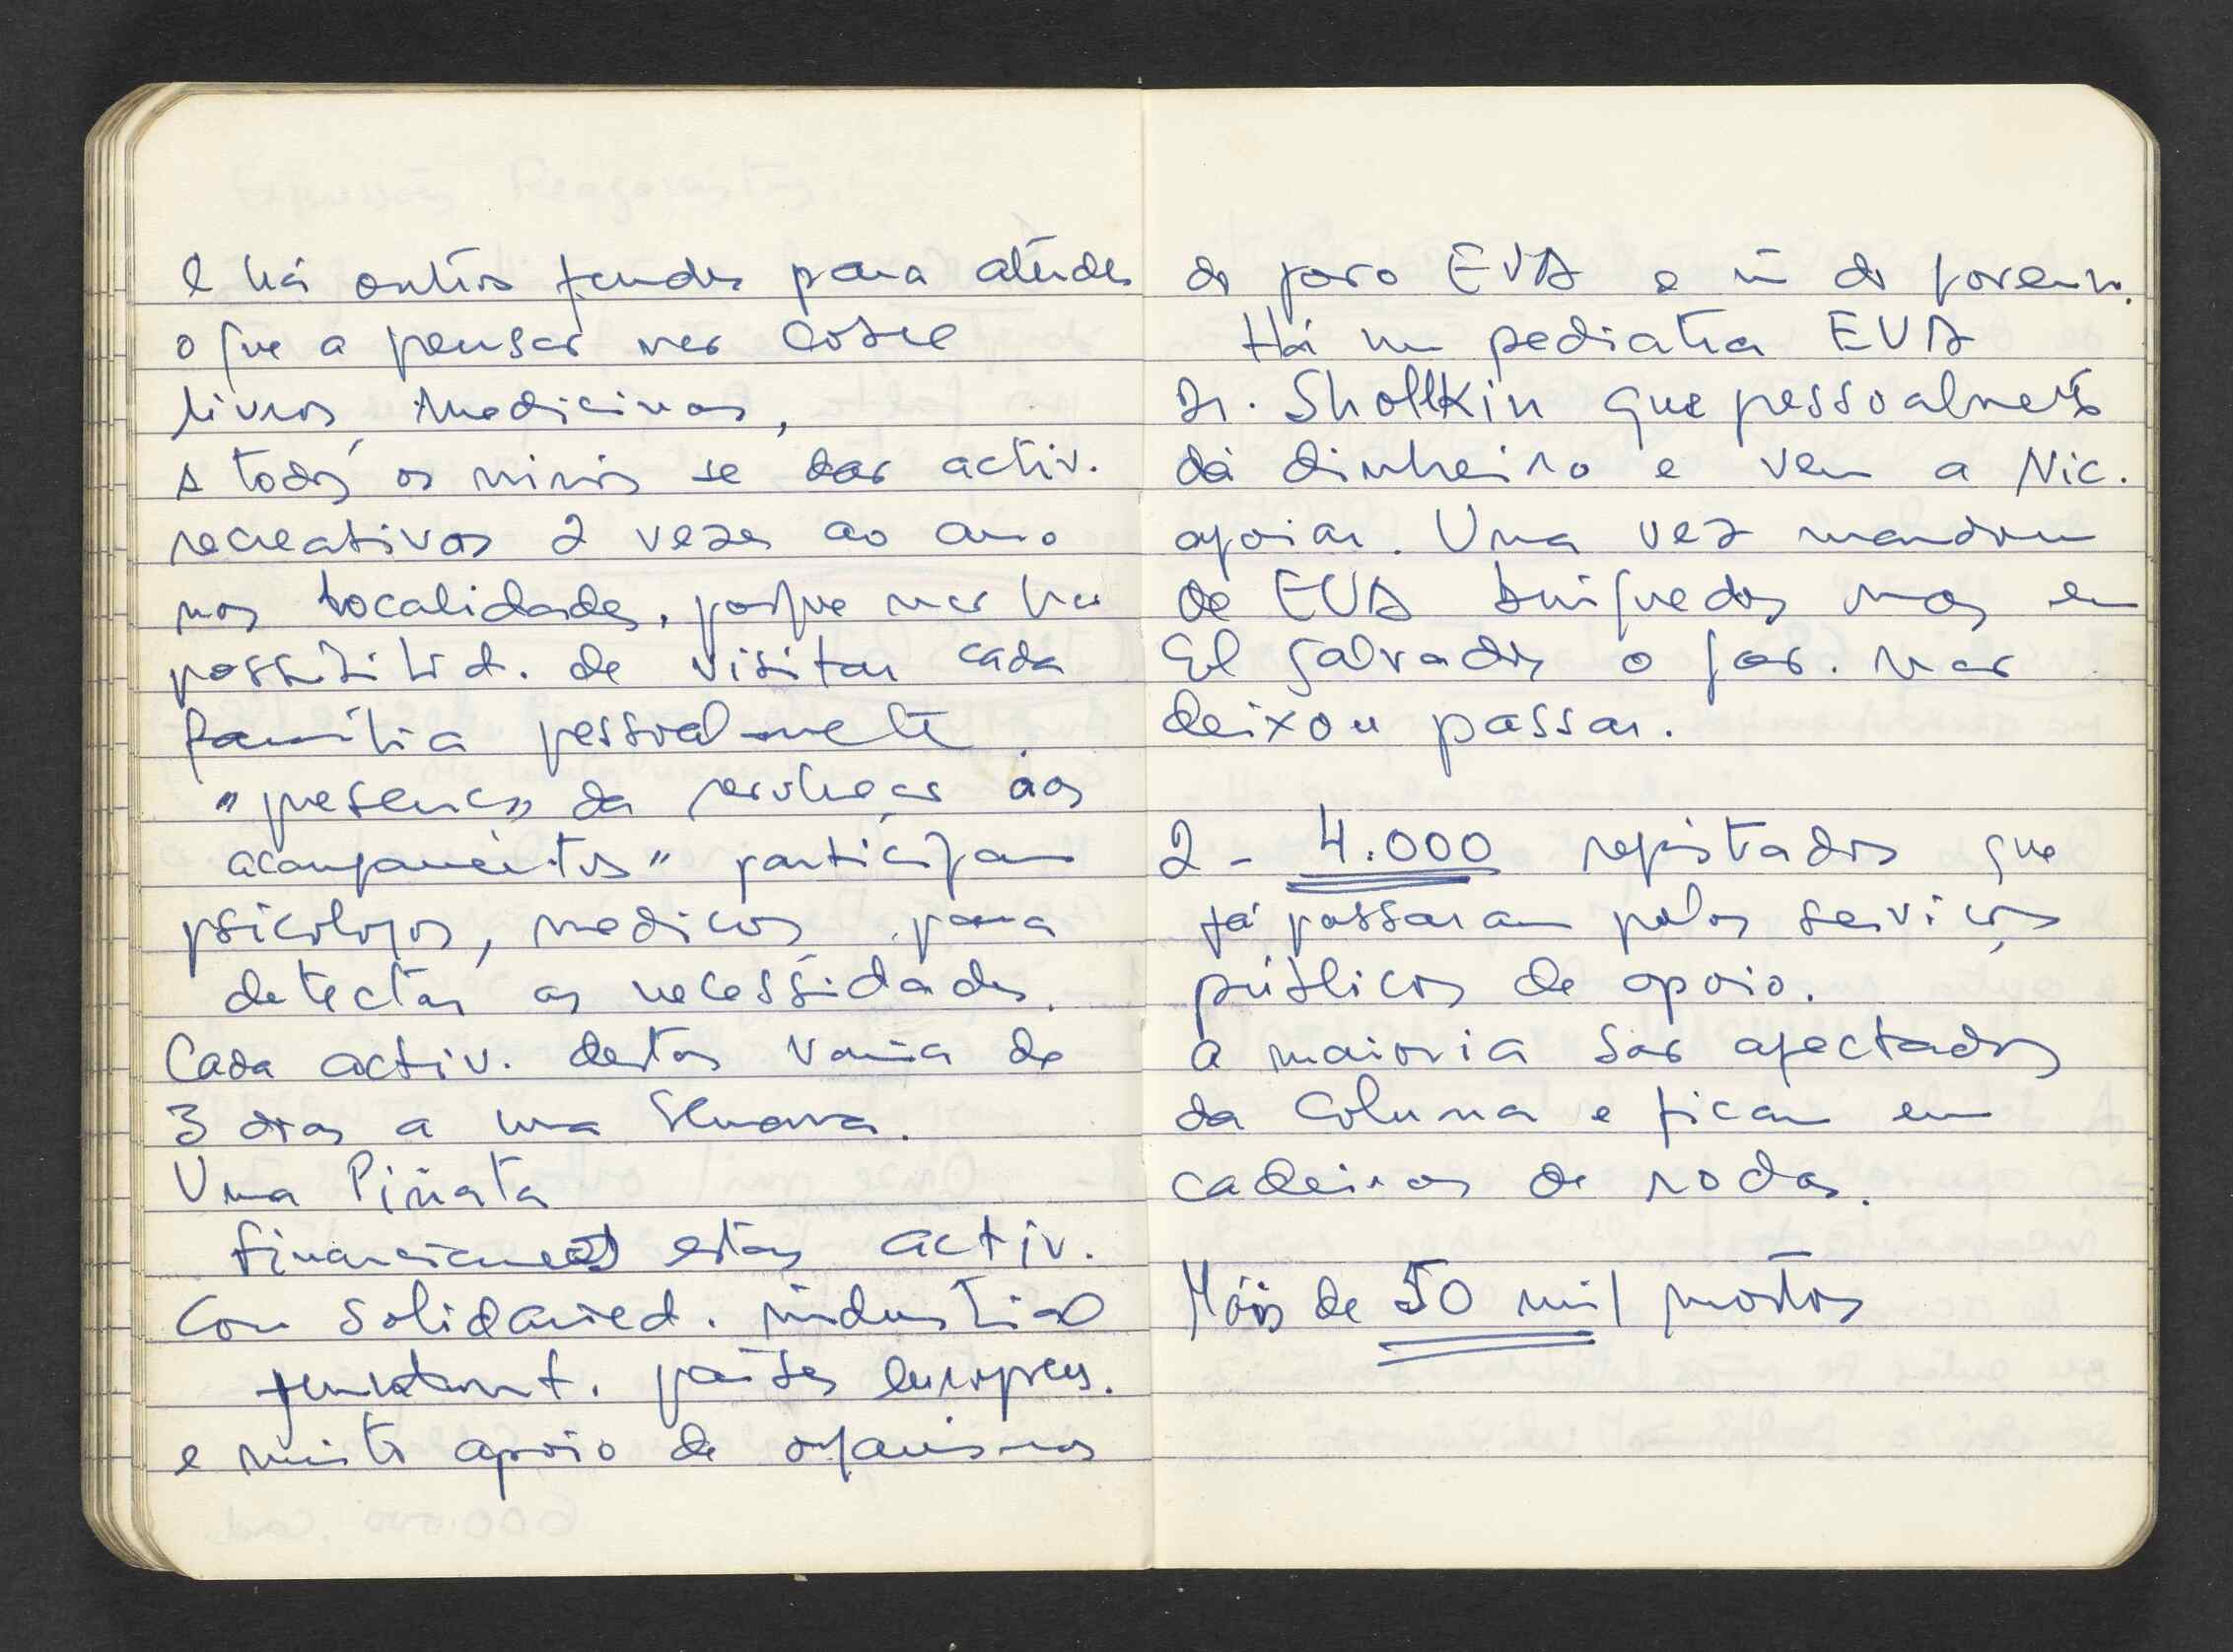 e há outros fundos para atender
o que a pensão não cobre
livros, medicinas,
A todos os niños se dão activ.
recreativas 2 vezes ao ano
nas localidades, porque não há
possibilid. de visitar cada
família pessoalmente.
"presença da revolução aos
acampamentos" participam
psicologos, medicos para
detectar as necessidades.
Cada activ. destas varia de
3 dias a uma semana.
Uma Piñata
financiamos estas activ.
com solidaried. industrial
fundament. países europeus.
e muito apoio de organismos
do povo EUA e ñ do governo.
Há um pediatra EUA
Dr. Sholtkin que pessoalmente
dá dinheiro e vem a Nic.
apoiar. Uma vez mandou
de EUA brinquedos mas em
El Salvador o gov. não
deixou passar.
2 - 4.000 registados que
já passaram pelos serviços
públicos de apoio.
a maioria são afectados
da coluna e ficam em
cadeiras de rodas.
Máis de 50 mil mortos